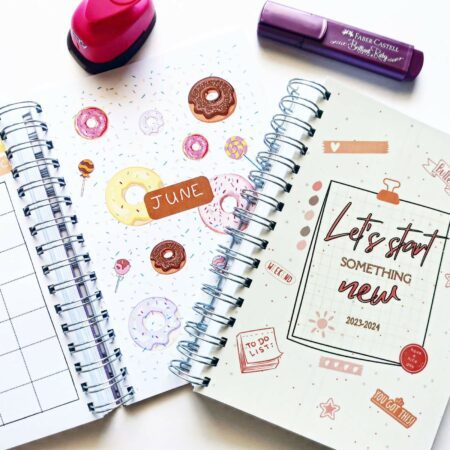 FABER-CASTELL
JUNE
Let's start
SOMETHING
new
2023-2024
WEEKND
TO DO
LIST:
YOU GOT THIS!